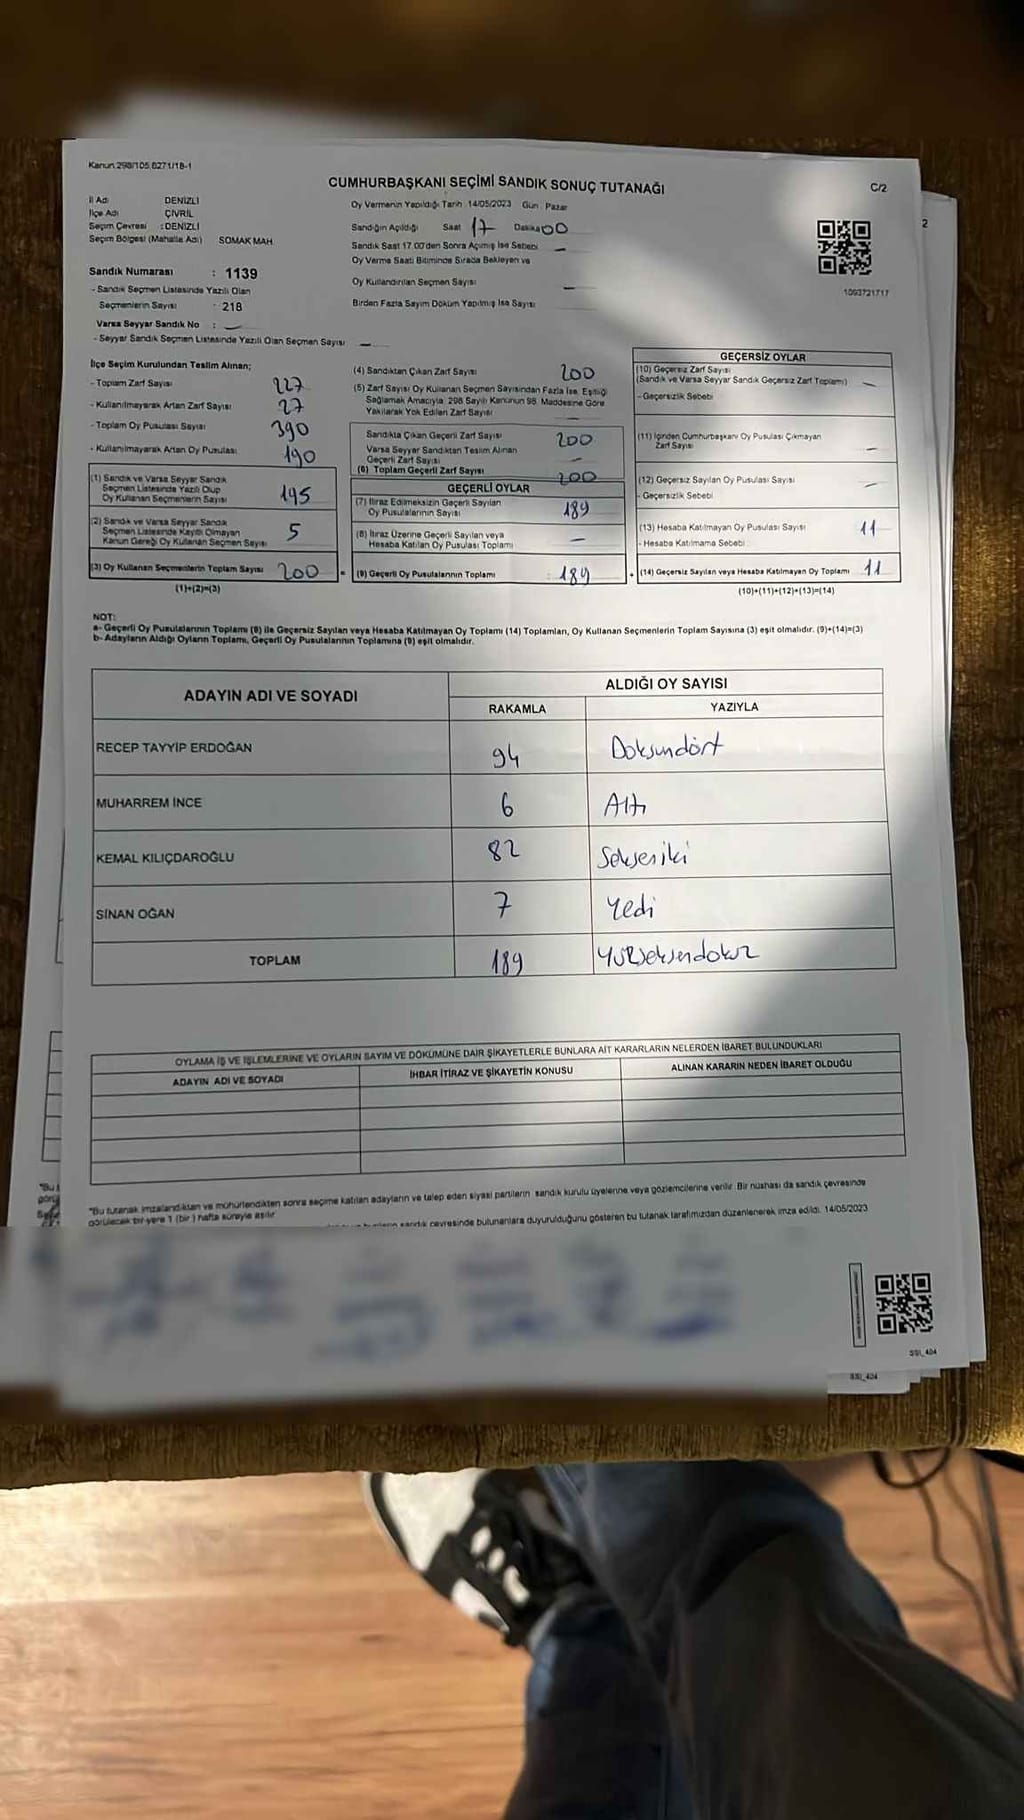 Kanun 298/105,6271/18-1
CUMHURBAŞKANI SEÇİMİ SANDIK SONUÇ TUTANAĞI
C/2
İl Adı DENİZLİ
İlçe Adı ÇİVRİL
Seçim Çevresi : DENİZLİ
Seçim Bölgesi (Mahalle Adı) SOMAK MAH.
Sandık Numarası : 1139
- Sandık Seçmen Listesinde Yazılı Olan
Seçmenlerin Sayısı : 218
Varsa Seyyar Sandık No : —
- Seyyar Sandık Seçmen Listesinde Yazılı Olan Seçmen Sayısı —
Oy Vermenin Yapıldığı Tarih 14/05/2023 Gün : Pazar
Sandığın Açıldığı Saat 17 Dakika 00
Sandık Saat 17.00'den Sonra Açılmış İse Sebebi —
Oy Verme Saati Bitiminde Sırada Bekleyen ve
Oy Kullandırılan Seçmen Sayısı —
Birden Fazla Sayım Döküm Yapılmış İse Sayısı
1093721717
İlçe Seçim Kurulundan Teslim Alınan;
- Toplam Zarf Sayısı 227
- Kullanılmayarak Artan Zarf Sayısı 27
- Toplam Oy Pusulası Sayısı 390
- Kullanılmayarak Artan Oy Pusulası 190
(1) Sandık ve Varsa Seyyar Sandık
Seçmen Listesinde Yazılı Olup
Oy Kullanan Seçmenlerin Sayısı 195
(2) Sandık ve Varsa Seyyar Sandık
Seçmen Listesinde Kayıtlı Olmayan
Kanun Gereği Oy Kullanan Seçmen Sayısı 5
(3) Oy Kullanan Seçmenlerin Toplam Sayısı 200
(1)+(2)=(3)
(4) Sandıktan Çıkan Zarf Sayısı 200
(5) Zarf Sayısı Oy Kullanan Seçmen Sayısından Fazla İse, Eşitliği
Sağlamak Amacıyla 298 Sayılı Kanunun 98. Maddesine Göre
Yakılarak Yok Edilen Zarf Sayısı —
Sandıkta Çıkan Geçerli Zarf Sayısı 200
Varsa Seyyar Sandıktan Teslim Alınan
Geçerli Zarf Sayısı —
(6) Toplam Geçerli Zarf Sayısı 200
GEÇERLİ OYLAR
(7) İtiraz Edilmeksizin Geçerli Sayılan
Oy Pusulalarının Sayısı 189
(8) İtiraz Üzerine Geçerli Sayılan veya
Hesaba Katılan Oy Pusulası Toplamı —
= (9) Geçerli Oy Pusulalarının Toplamı : 189
GEÇERSİZ OYLAR
(10) Geçersiz Zarf Sayısı
(Sandık ve Varsa Seyyar Sandık Geçersiz Zarf Toplamı) —
- Geçersizlik Sebebi
(11) İçinden Cumhurbaşkanı Oy Pusulası Çıkmayan
Zarf Sayısı —
(12) Geçersiz Sayılan Oy Pusulası Sayısı —
- Geçersizlik Sebebi
(13) Hesaba Katılmayan Oy Pusulası Sayısı 11
- Hesaba Katılmama Sebebi
+ (14) Geçersiz Sayılan veya Hesaba Katılmayan Oy Toplamı 11
(10)+(11)+(12)+(13)=(14)
NOT:
a- Geçerli Oy Pusulalarının Toplamı (9) ile Geçersiz Sayılan veya Hesaba Katılmayan Oy Toplamı (14) Toplamları, Oy Kullanan Seçmenlerin Toplam Sayısına (3) eşit olmalıdır. (9)+(14)=(3)
b- Adayların Aldığı Oyların Toplamı, Geçerli Oy Pusulalarının Toplamına (9) eşit olmalıdır.
ADAYIN ADI VE SOYADI ALDIĞI OY SAYISI
RAKAMLA YAZIYLA
RECEP TAYYİP ERDOĞAN 94 Doksandört
MUHARREM İNCE 6 Altı
KEMAL KILIÇDAROĞLU 82 Sekseniki
SİNAN OĞAN 7 Yedi
TOPLAM 189 Yüzseksendokuz
OYLAMA İŞ VE İŞLEMLERİNE VE OYLARIN SAYIM VE DÖKÜMÜNE DAİR ŞİKAYETLERLE BUNLARA AİT KARARLARIN NELERDEN İBARET BULUNDUKLARI
ADAYIN ADI VE SOYADI İHBAR İTİRAZ VE ŞİKAYETİN KONUSU ALINAN KARARIN NEDEN İBARET OLDUĞU
*Bu tutanak imzalandıktan ve mühürlendikten sonra seçime katılan adayların ve talep eden siyasi partilerin sandık kurulu üyelerine veya gözlemcilerine verilir. Bir nüshası da sandık çevresinde
görülecek bir yere 1 (bir) hafta süreyle asılır.
sandık çevresinde bulunanlara duyurulduğunu gösteren bu tutanak tarafımızdan düzenlenerek imza edildi. 14/05/2023
SSİ_404
SSİ_404